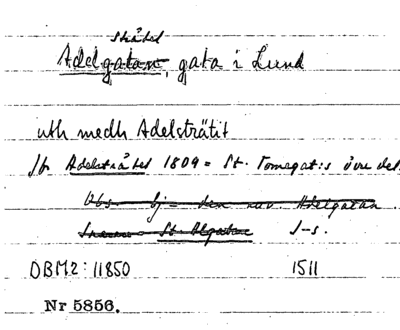 stråtet
Adelgatan, gata i Lund
uth medh Adelsträtit
Jfr Adelstrålet 1809 = St. Tomegat:s övre del.
Obs. Ej = den nuv. Adelgatan.
St. Algatan J-s.
DBM2: 11850 1511
Nr 5856.